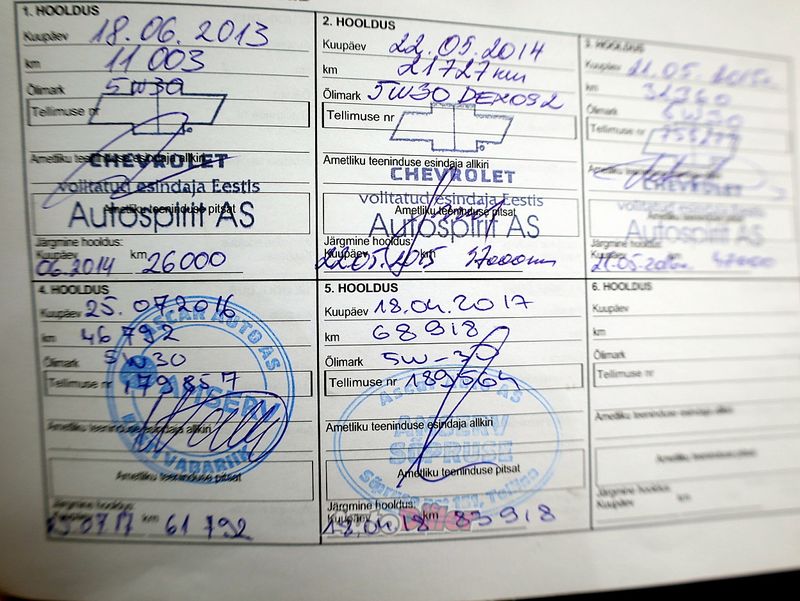 1. HOOLDUS
Kuupäev 18.06.2013
km 11 003
Õlimark 5W30
Tellimuse nr
Ametliku teeninduse esindaja allkiri
CHEVROLET
volitatud esindaja Eestis
Ametliku teeninduse pitsat
Autospirit AS
Järgmine hooldus:
Kuupäev 06.2014 km 26000
2. HOOLDUS
Kuupäev 22.05.2014
km 21727 km
Õlimark 5W30 DEXOS2
Tellimuse nr
Ametliku teeninduse esindaja allkiri
CHEVROLET
volitatud esindaja Eestis
Ametliku teeninduse pitsat
Autospirit AS
Järgmine hooldus:
Kuupäev 22.05.2015 km 37000km
3. HOOLDUS
Kuupäev 21.05.2015
km
Õlimark 5W30
Tellimuse nr
Ametliku
CHEVROLET
volitatud esindaja Eestis
Ametliku teeninduse pitsat
Autospirit AS
Järgmine hooldus:
Kuupäev 21.05.2016 km 47000
4. HOOLDUS
Kuupäev 25.07.2016
km 46 792
Õlimark 5W30
Tellimuse nr 179857
ASCAR AUTO AS
AMSERV
Ametliku teeninduse esindaja allkiri
Ametliku teeninduse pitsat
Järgmine hooldus:
Kuupäev 25.07.17 km 61 792
5. HOOLDUS
Kuupäev 18.04.2017
km 68918
Õlimark 5W-30
Tellimuse nr 189564
Ascar Auto AS
Ametliku teeninduse esindaja allkiri
AMSERV
SÕPRUSE
Ametliku teeninduse pitsat
Sõpruse pst 151, Tallinn
Järgmine hooldus:
Kuupäev 18.04.18 km 83918
6. HOOLDUS
Kuupäev
km
Õlimark
Tellimuse nr
Ametliku teeninduse esindaja allkiri
Ametliku teeninduse pitsat
Järgmine hooldus:
Kuupäev km